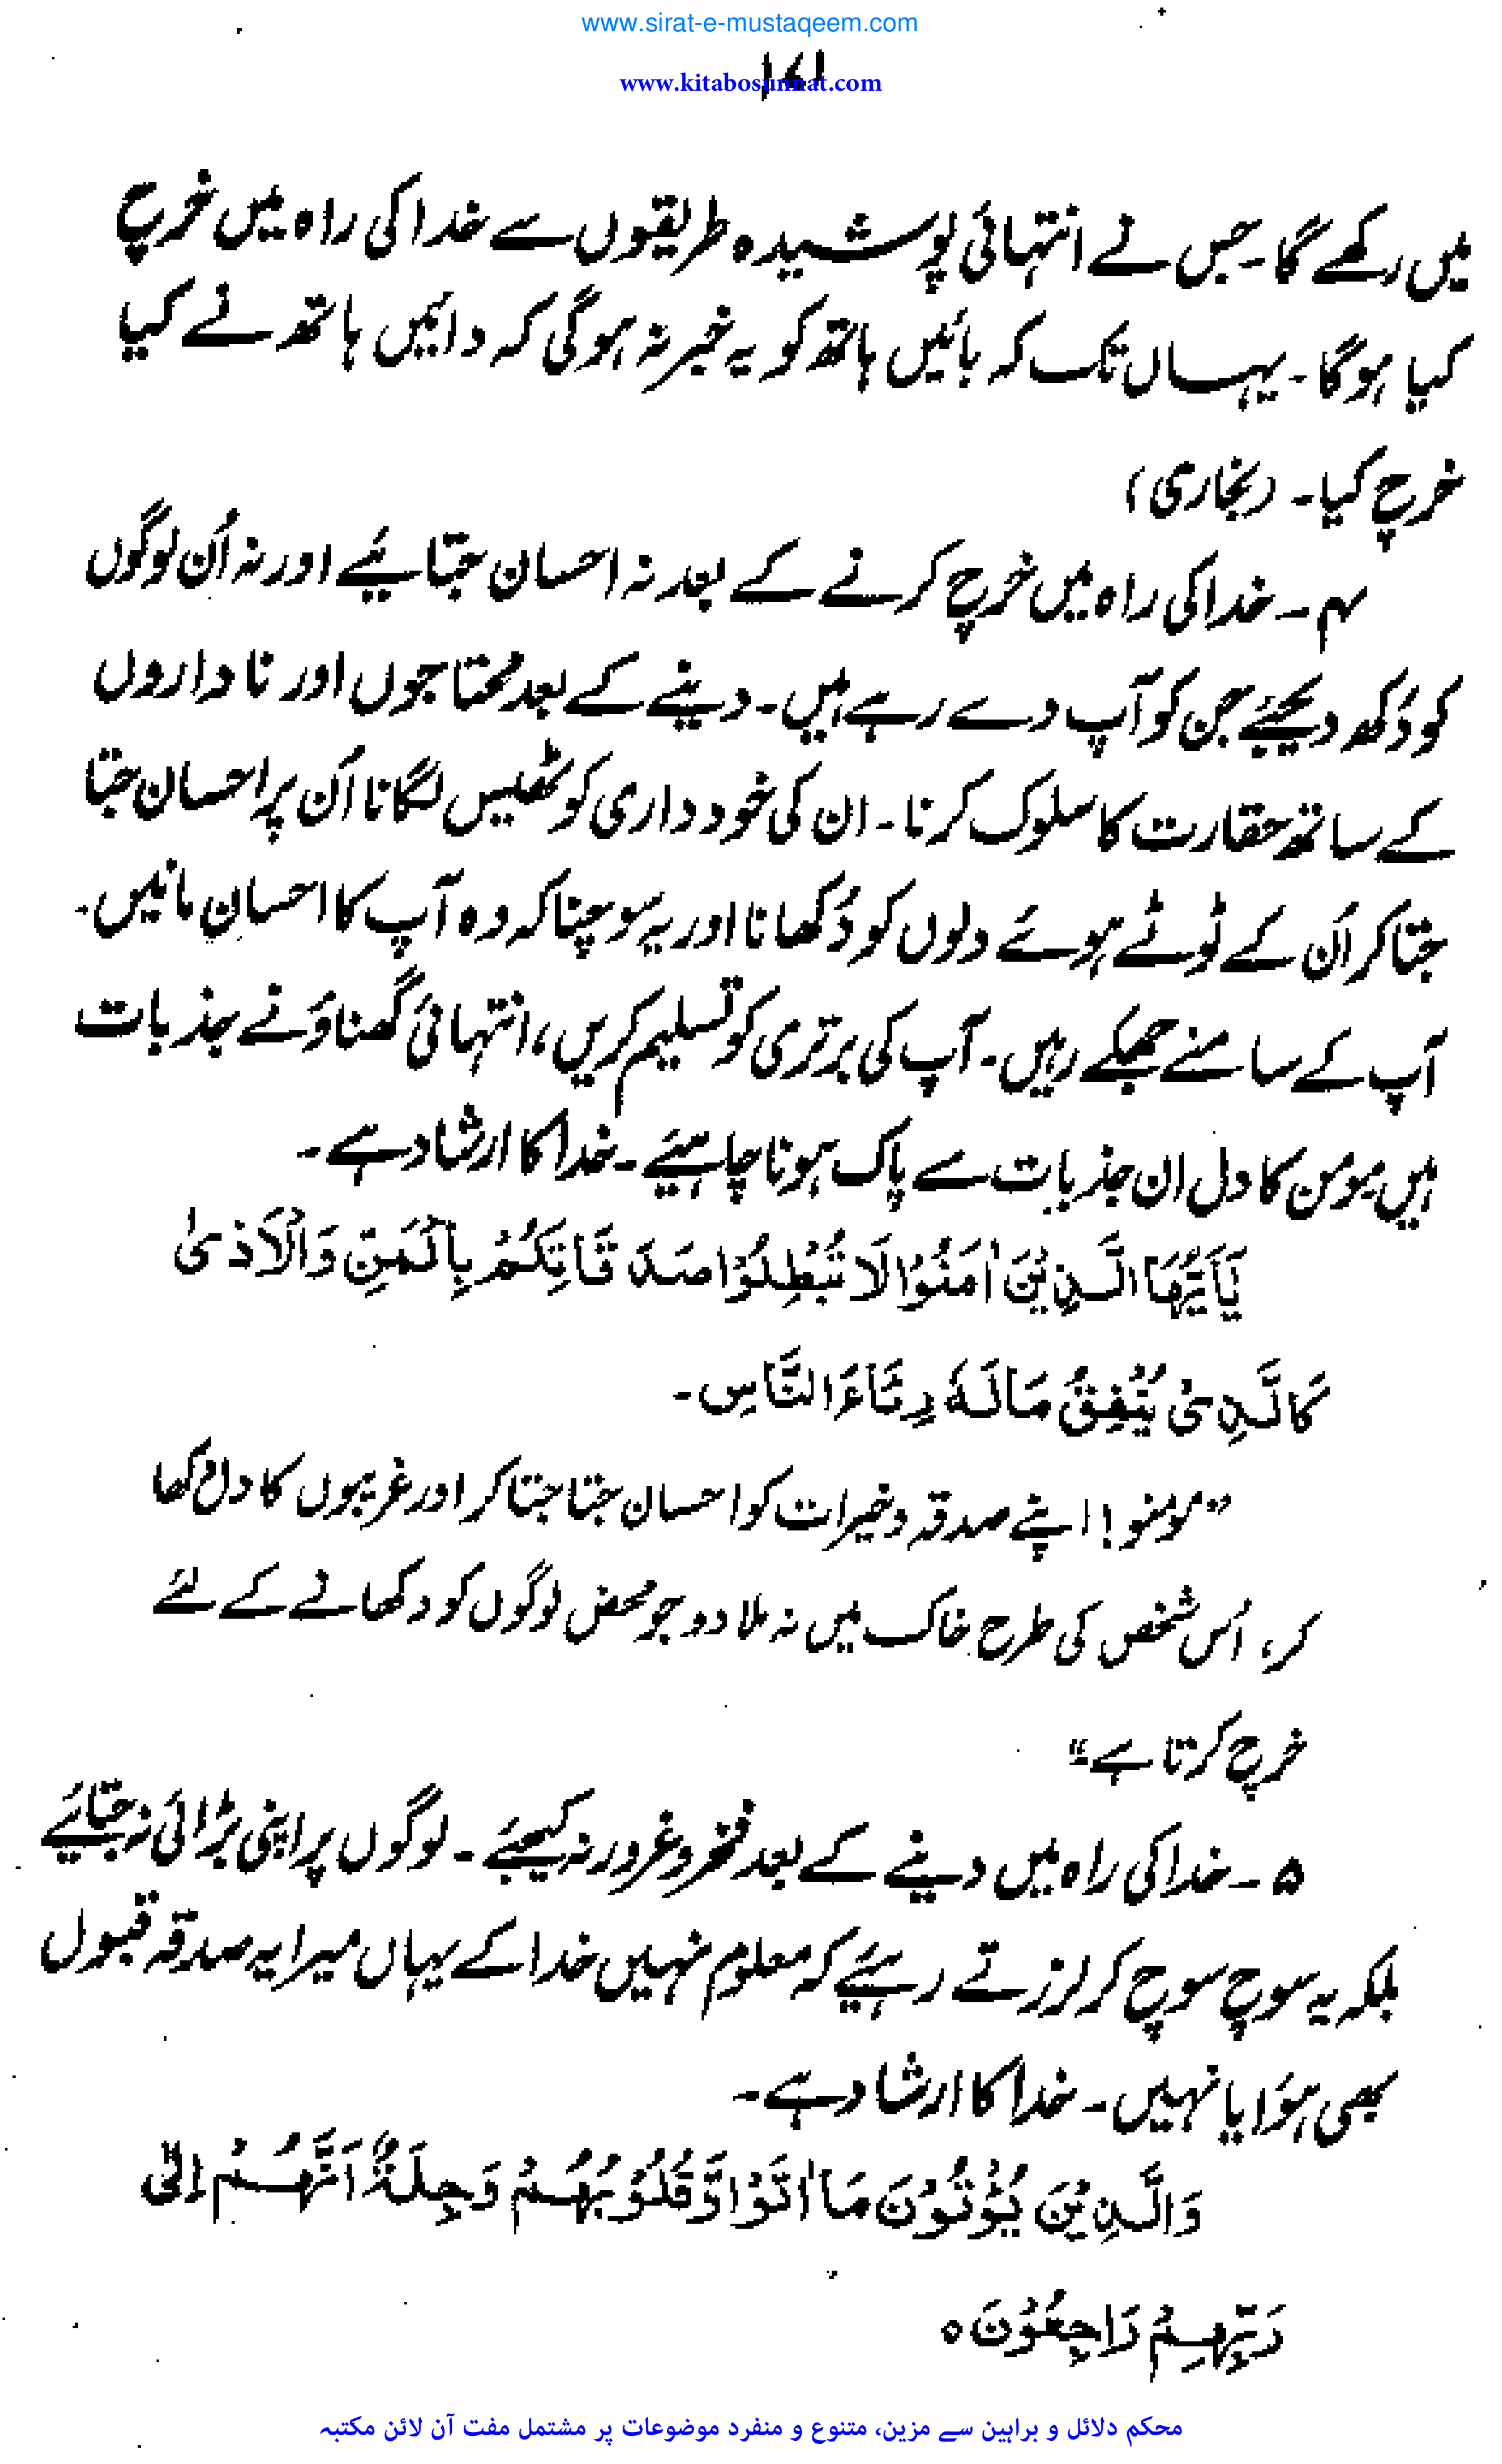 www.sirat-e-mustaqeem.com
۱۷۱
www.kitabosunnat.com
میں رکھے گا۔ جس نے انتہائی پوشیدہ طریقوں سے خدا کی راہ میں خرچ
کیا ہوگا۔ یہاں تک کہ بائیں ہاتھ کو یہ خبر نہ ہوگی کہ دائیں ہاتھ نے کیا
خرچ کیا۔ (بخاری)
۴۔ خدا کی راہ میں خرچ کرنے کے بعد نہ احسان جتائیے اور نہ اُن لوگوں
کو دُکھ دیجئے جن کو آپ دے رہے ہیں۔ دینے کے بعد محتاجوں اور ناداروں
کے ساتھ حقارت کا سلوک کرنا۔ ان کی خودداری کو ٹھیس لگانا اُن پر احسان جتا
جتا کر اُن کے ٹوٹے ہوئے دلوں کو دُکھانا اور یہ سوچنا کہ وہ آپ کا احسان مانیں۔
آپ کے سامنے جھکے رہیں۔ آپ کی برتری کو تسلیم کریں، انتہائی گھناؤنے جذبات
ہیں مومن کا دل ان جذبات سے پاک ہونا چاہیئے۔ خدا کا ارشاد ہے۔
يٰٓاَيُّهَا الَّذِيْنَ اٰمَنُوْا لَا تُبْطِلُوْا صَدَقَاتِكُمْ بِالْمَنِّ وَالْاَذٰى
كَالَّذِىْ يُنْفِقُ مَالَهٗ رِئَآءَ النَّاسِ۔
”مومنو! اپنے صدقہ و خیرات کو احسان جتا جتا کر اور غریبوں کا دل دُکھا
کر، اُس شخص کی طرح خاک میں نہ ملا دو جو محض لوگوں کو دکھانے کے لئے
خرچ کرتا ہے“
۵۔ خدا کی راہ میں دینے کے بعد فخر و غرور نہ کیجئے۔ لوگوں پر اپنی بڑائی نہ جتائیے
بلکہ یہ سوچ سوچ کر لرزتے رہیئے کہ معلوم نہیں خدا کے یہاں میرا یہ صدقہ قبول
بھی ہوَا یا نہیں۔ خدا کا ارشاد ہے۔
وَالَّذِيْنَ يُؤْتُوْنَ مَآ اٰتَوْا وَّقُلُوْبُهُمْ وَجِلَةٌ اَنَّهُمْ اِلٰى
رَبِّهِمْ رَاجِعُوْنَ ه
محکم دلائل و براہین سے مزین، متنوع و منفرد موضوعات پر مشتمل مفت آن لائن مکتبہ